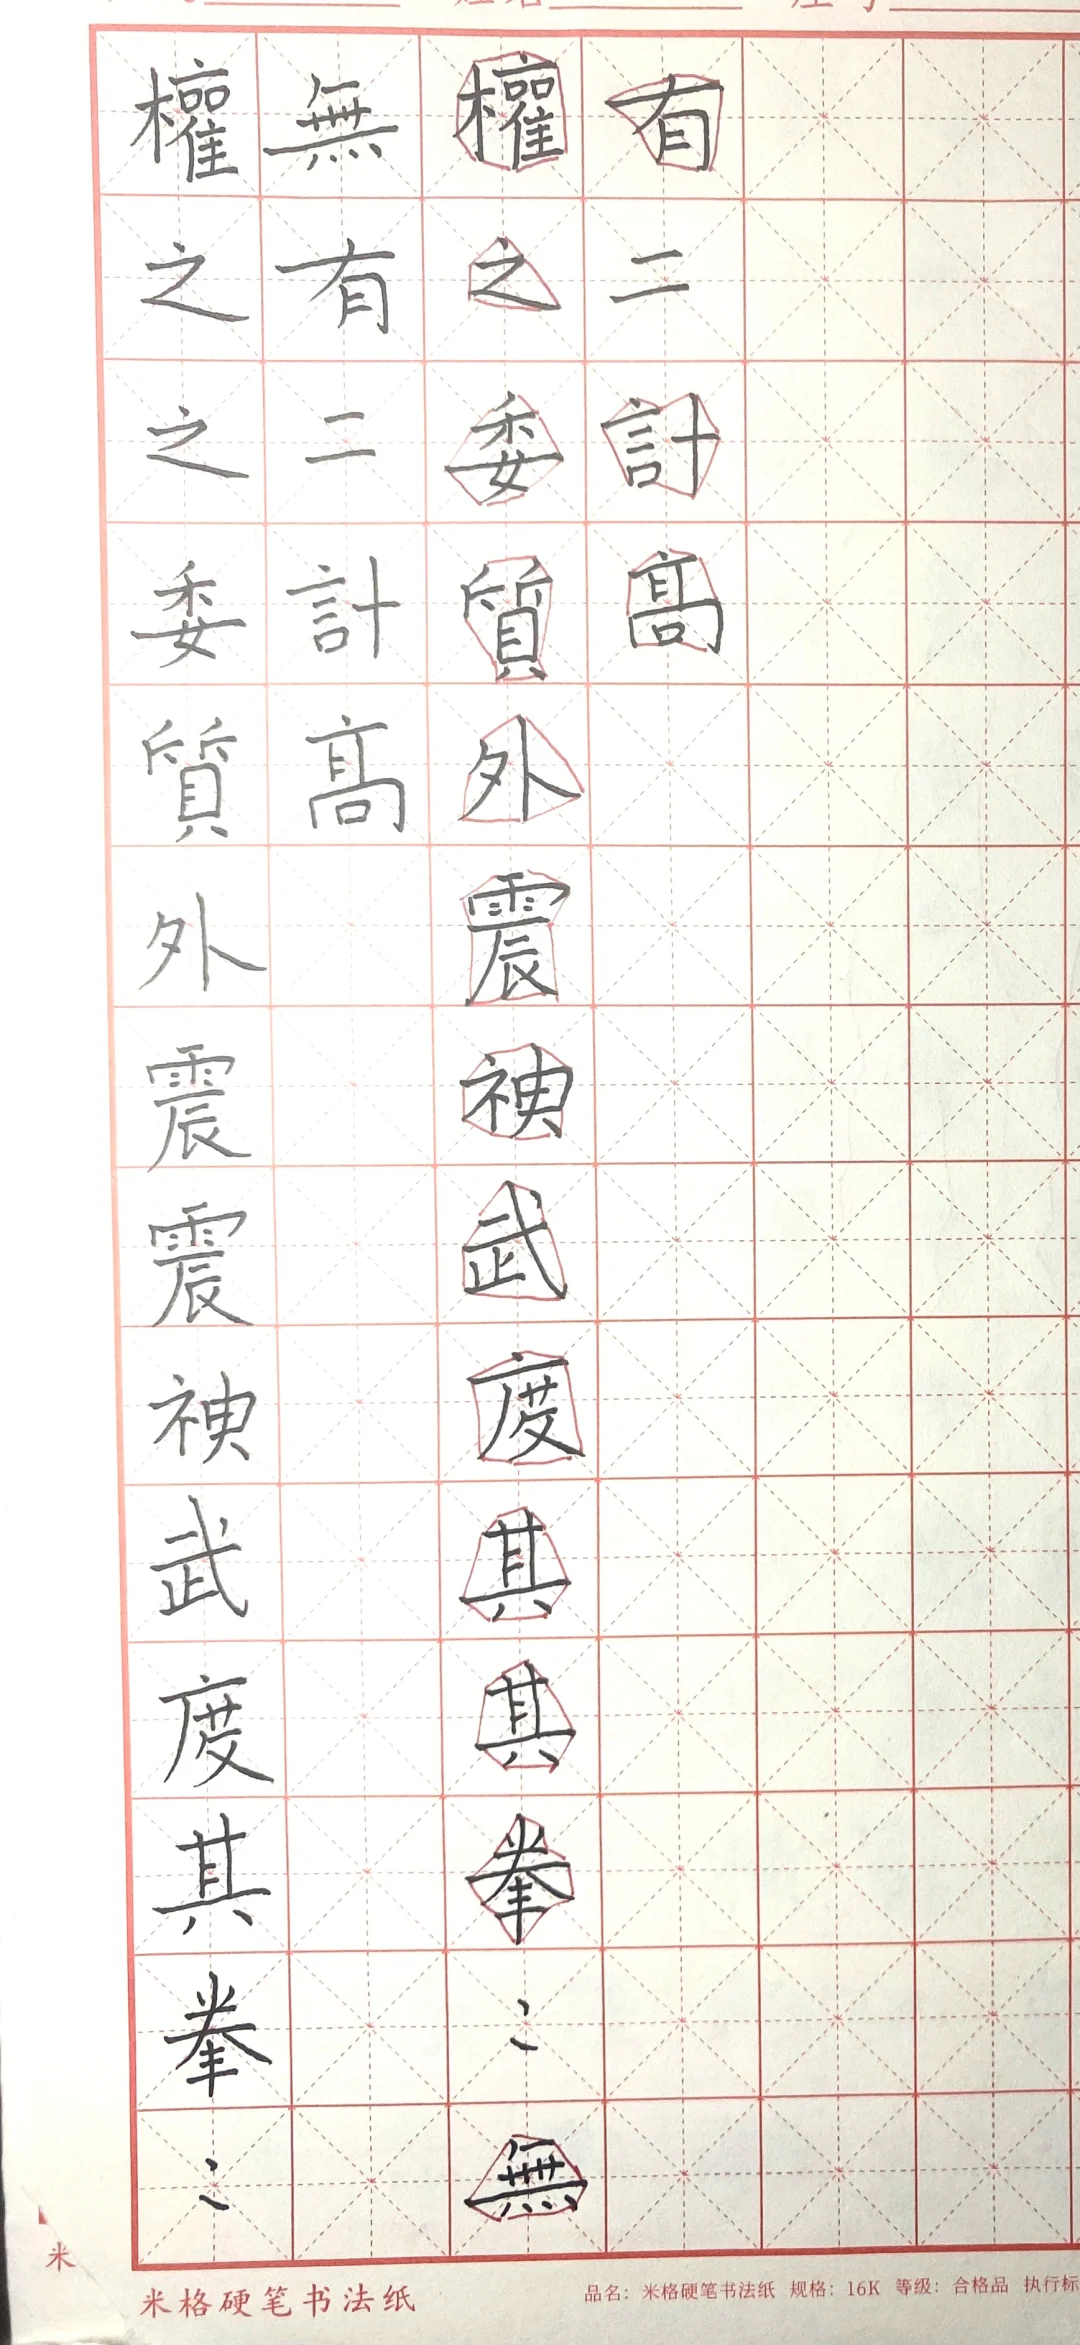 權之之委質外震震神武度其拳〻
無有二計髙
權之委質外震神武度其其拳〻無
有二計髙
米
米格硬笔书法纸
品名：米格硬笔书法纸 规格：16K 等级：合格品 执行标